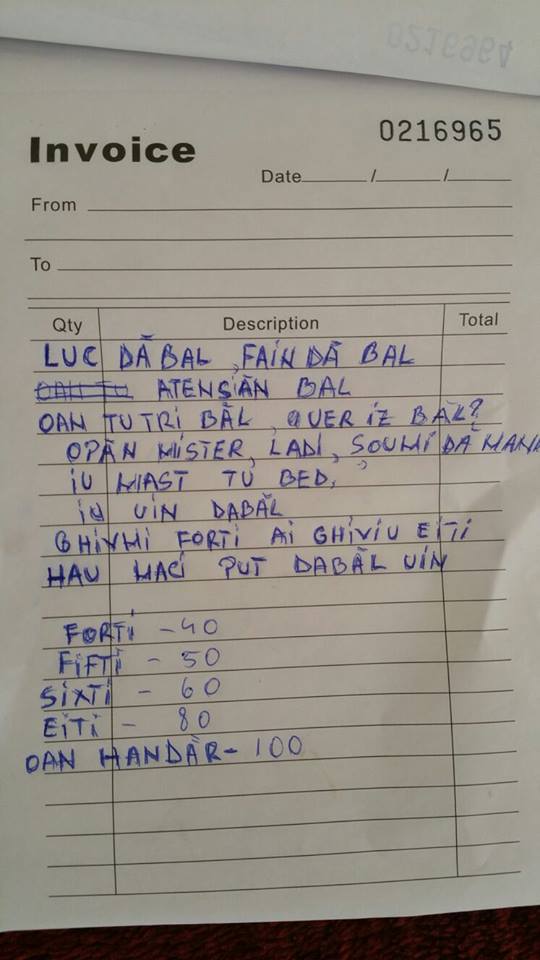 0216964
Invoice
0216965
Date / /
From
To
Qty Description Total
LUC DĂ BAL, FAIN DĂ BAL
OAN TU ATENȘĂN BAL
OAN TU TRI BĂL, QUER IZ BĂL?
OPĂN MISTER, LADI, SOUMI DĂ MANI
IU MIAST TU BED,
IU UIN DABĂL
GHIVMI FORTI AI GHIVIU EITI
HAU MACI PUT DABĂL UIN
FORTI - 40
FIFTI - 50
SIXTI - 60
EITI - 80
OAN HANDĂR - 100